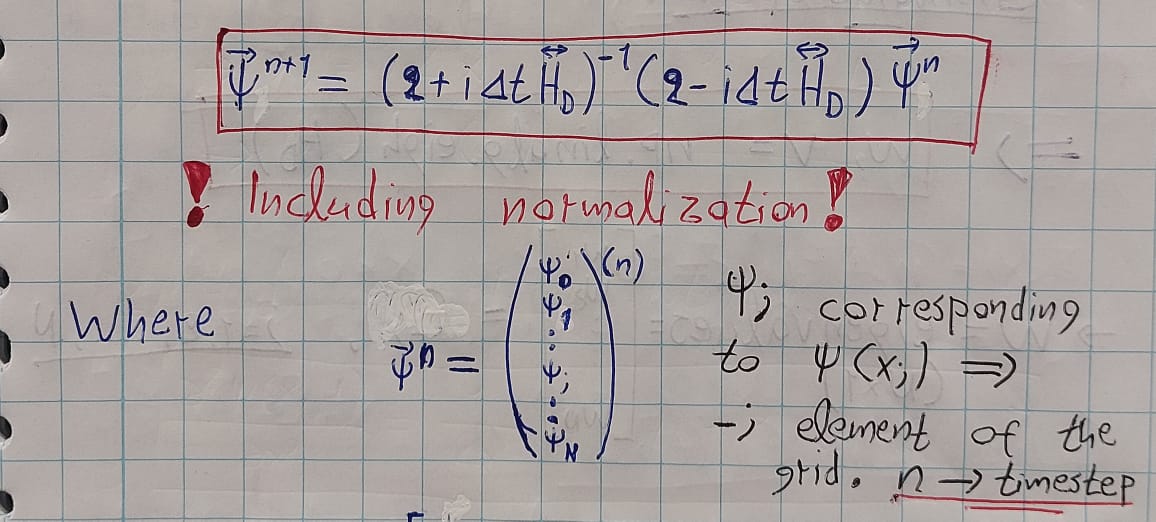 ψ⃗ⁿ⁺¹ = (2 + i Δt H⃡_D)⁻¹ (2 - i Δt H⃡_D) ψ⃗ⁿ
! Including normalization !
Where ψ⃗ⁿ = (ψ₀ ψ₁ ⋮ ψⱼ ⋮ ψ_N)⁽ⁿ⁾
ψⱼ corresponding
to ψ(xⱼ) ⇒
-j element of the
grid. n → timestep